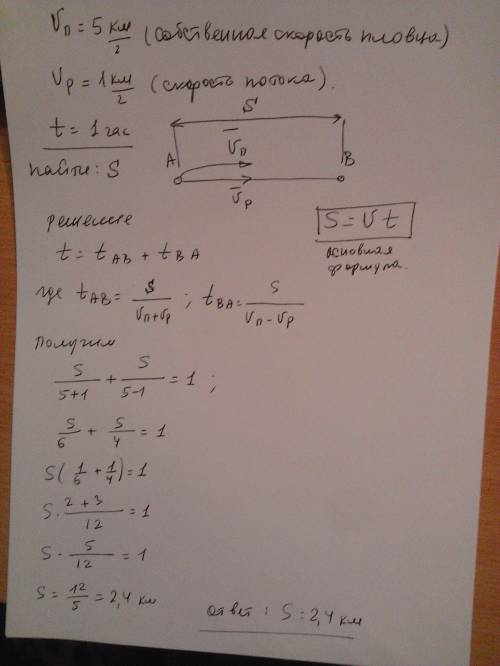 Vп = 5 км/г (собственная скорость пловца)
Vр = 1 км/г (скорость потока).
t = 1 час
S
Vп
A
B
Vр
найти: S
решение
S = Vt
t = tAB + tBA
основная
формула.
где tAB = S/(Vп+Vр) ; tBA = S/(Vп-Vр)
получим
S/(5+1) + S/(5-1) = 1 ;
S/6 + S/4 = 1
S(1/6 + 1/4) = 1
S · (2+3)/12 = 1
S · 5/12 = 1
S = 12/5 = 2,4 км
ответ: S = 2,4 км